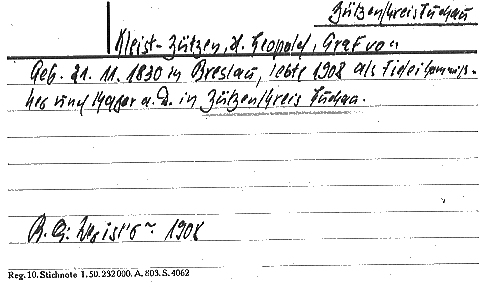 Zützen/Kreis Luckau
Kleist-Zützen, d. Leopold, Graf von
Geb. 21. 11. 1830 in Breslau, lebte 1908 als Fideikommiß-
her und Major a. D. in Zützen/Kreis Luckau.
B. G. 1908
Reg. 10. Stichnote 1. 50. 232000. A. 803. S. 4062